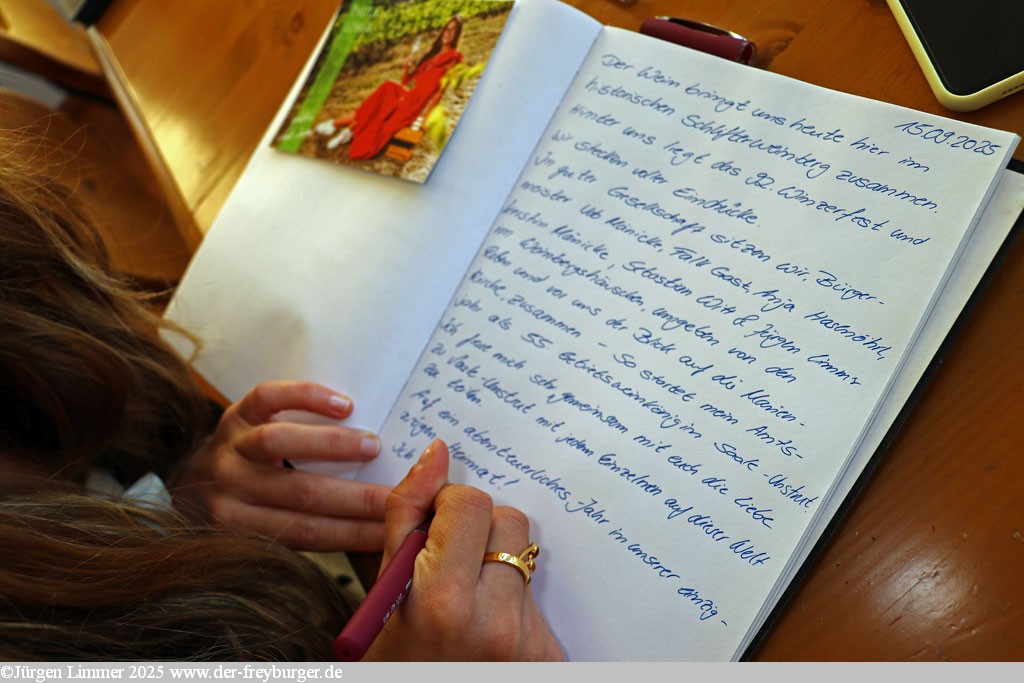 15.09.2025
Der Wein bringt uns heute hier im
historischen Schlifterweinberg zusammen.
Hinter uns liegt das 92. Winzerfest und
wir stecken voller Eindrücke.
In guter Gesellschaft sitzen wir, Bürger-
meister Udo Mänicke, Falk Gast, Anja Hasenöhrl,
Kerstin Mänicke, Sebastian Witt & Jürgen Limmer
im Weinbergshäuschen, umgeben von den
Reben und vor uns der Blick auf die Marien-
kirche, zusammen - So startet mein Amts-
jahr als 55. Gebietsweinkönigin Saale-Unstrut.
Ich freue mich sehr gemeinsam mit euch die Liebe
zu Saale-Unstrut mit jedem Einzelnen auf dieser Welt
zu teilen.
Auf ein abenteuerliches Jahr in unserer einzig-
artigen Heimat!
Ich
©Jürgen Limmer 2025 www.der-freyburger.de